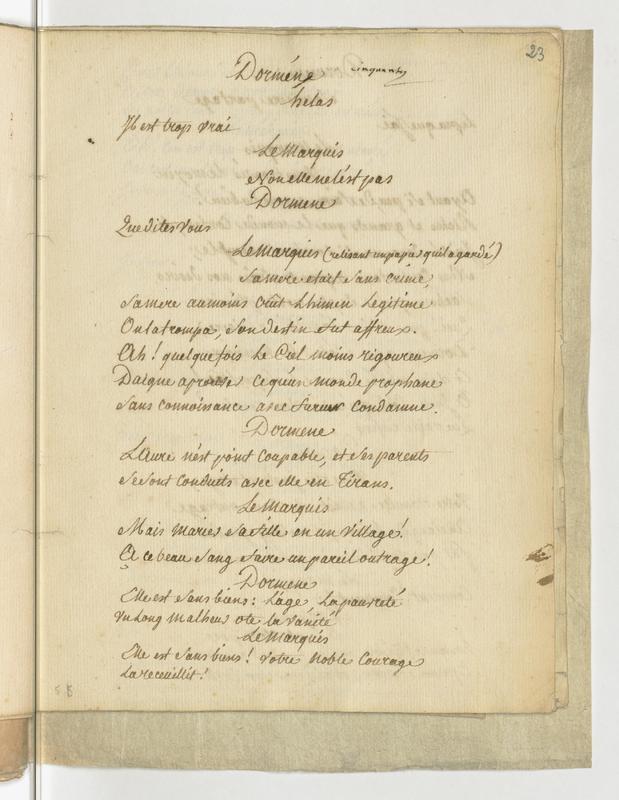 23
Dorméne
helas
Il est trop vrai
Le Marquis
Non elle ne l'est pas
Dormene
Que dites vous
Le Marquis (relisant un papier qu'il a gardé)
Sa mere etait sans crime,
Sa mere au moins crut Lhimen Legitime
On la trompa, son destin fut affreux.
Ah! quelque fois Le Ciel moins rigoureux
Daigne aprouver ce qu'un monde prophane
Sans connoissance avec fureur condamne.
Dormene
Laure n'est point coupable, et ses parents
Se sont conduits avec elle en Tirans.
Le Marquis
Mais Marier sa fille en un village!
A ce beau sang faire un pareil outrage!
Dormene
Elle est sans biens: L'age, La pauvreté
Un Long malheur ote la vanité
Le Marquis
Elle est sans biens! votre noble courage
La receuillit!